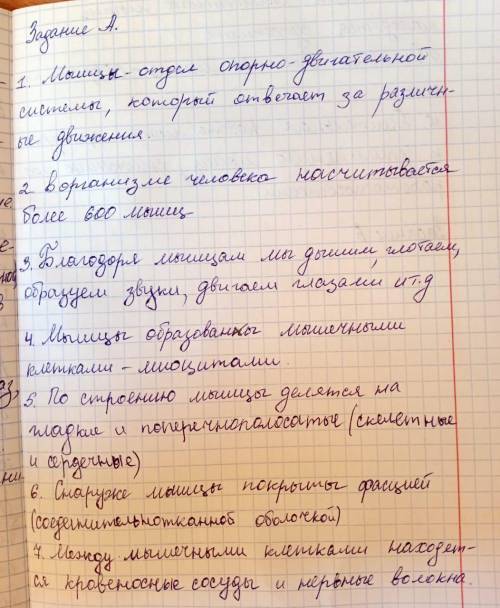 Задание А.
1. Мышцы - отдел опорно-двигательной
системы, который отвечает за различн-
ые движения.
2 Ворганизме человека насчитывается
более 600 мышц
3. Благодоря мышцам мы дышим, глотаем,
образуем звуки, двигаем глазами ит.д
4. Мышцы образованны мышечными
клетками - миоцитами.
5. По строению мышцы делятся на
гладкие и поперечнополосатые (скелетные
и сердечные)
6. Снаруже мышцы покрыты фасцией
(соеденительнотканной оболочкой)
7. Между мышечными клетками находет-
ся кровеносные сосуды и нервные волокна.